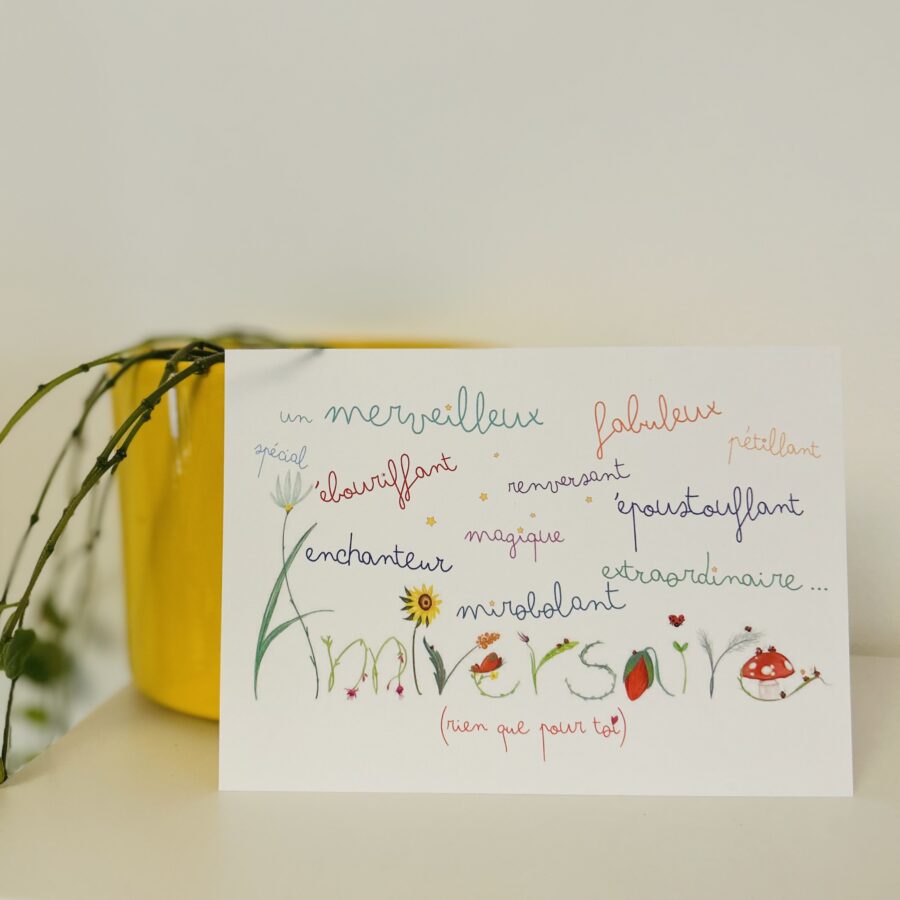 un merveilleux fabuleux
pétillant
spécial ébouriffant renversant
époustouflant
magique
enchanteur
extraordinaire ...
mirobolant
Anniversaire
(rien que pour toi)